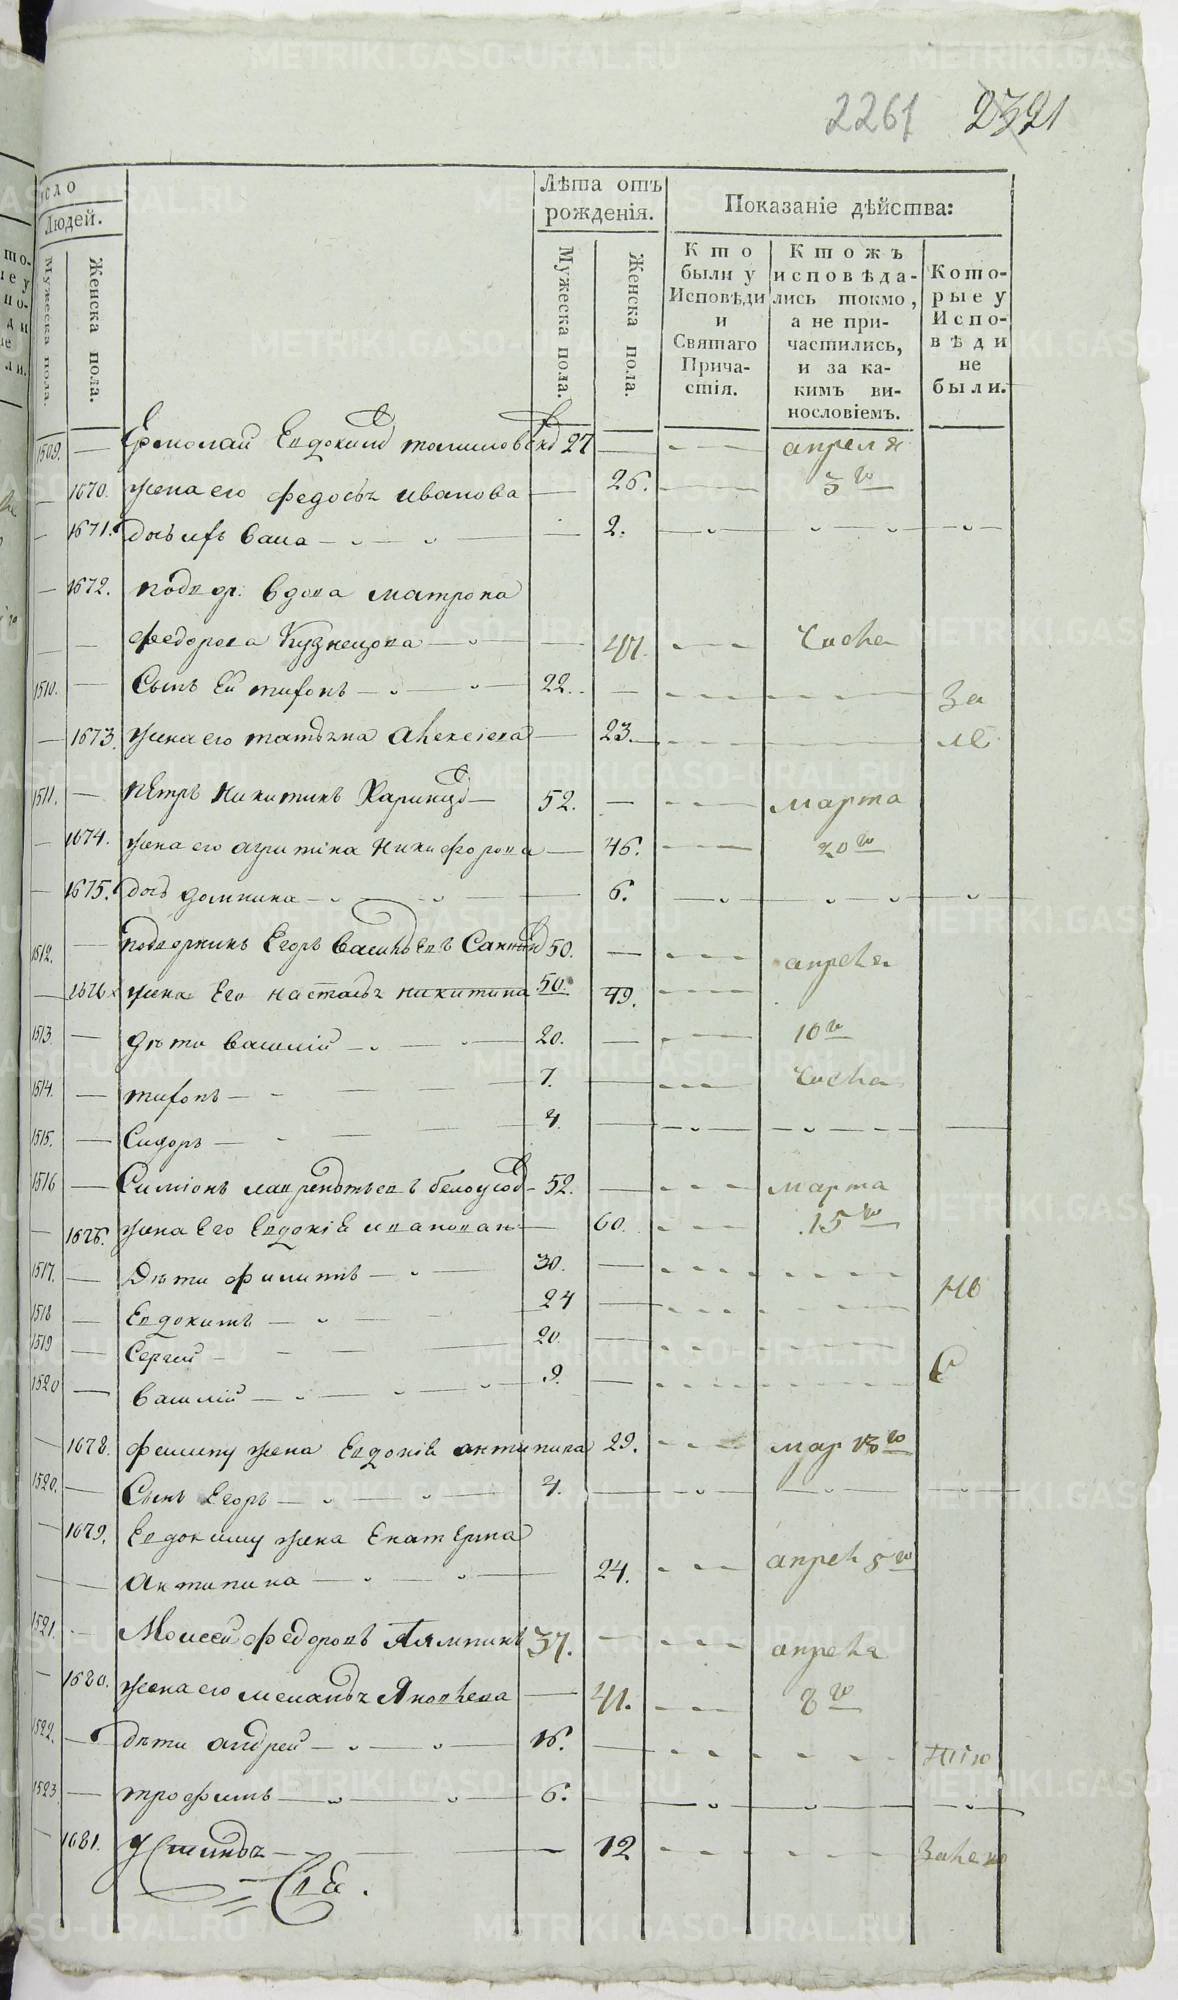 2261 2321
сло
Людей.
Мужеска пола.
Женска пола.
Лѣта отъ рожденія.
Мужеска пола.
Женска пола.
Показаніе дѣйства:
Кто были у Исповѣди и Святаго Причастія.
Ктожъ исповѣдались токмо, а не причастились, и за какимъ винословіемъ.
Которые у Исповѣди не были.
1509. — Ермолай Евдокимъ 27 — апреля
1670. жена его федосья иванова — 26. 3го
1671. дочь ихъ — 2.
1672. вдова матрона
федорова Кузнецова — 47. числа
1510. — Сынъ Ей тифонъ — 22. — За
1673. жена его татьяна алексіева — 23.
1511. — Пётръ Никитинъ 52. — марта
1674. жена его агрипина Никифорова — 46. 20го
1675. дочь домнина — 6.
1512. — Егоръ Васильевъ 50. — апреля
1676. жена Его настасья никитина 50. 49.
1513. — дѣти василій — 20. — 10го
1514. — тифонъ — 7. — числа
1515. — Сидоръ — 4.
1516 — Симіонъ лаврентьевъ 52. — марта
1676. жена Его Евдокія 60. 15го
1517. — Дѣти филипъ — 30. —
1518 — Евдокимъ — 24 — Не
1519 — Сергей — 20. —
1520 — василій — 9. —
1678. филипу жена Евдокія антипина 29. мар 13го
1520. — Сынъ Егоръ — 4. —
1679. Евдокиму жена Екатерина
Антипина — 24. апрел 8го
1521. — Моисей федоровъ 37. — апреля
1680. жена его меланья Яковлева — 41. 8го
1522. — дѣти андрей — 16. —
1523 — трофимъ — 6. —
1681. — 12